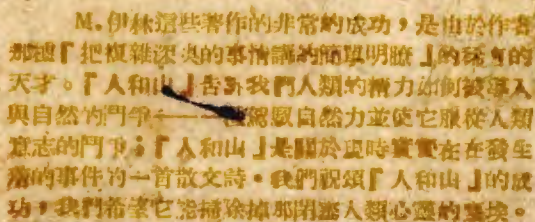 M。伊林這些著作的非常的成功，是由於作者
那種『把複雜深奧的事情講的簡單明瞭』的稀有的
天才。『人和山』告訴我們人類的精力如何被導入
與自然的鬥爭——種觀自然力並使它服從人類
意志的鬥爭；『人和山』是關於那時實實在在發生
着的事件的一首散文詩。我們祝頌『人和山』的成
功，我們希望它能掃除掉那閉塞人類心靈的